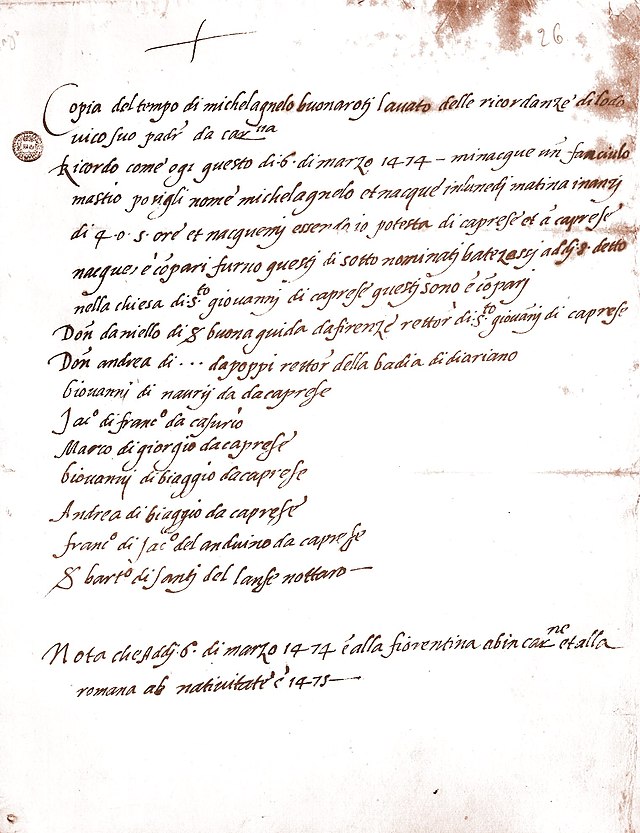 26
Copia del tempo di michelagnelo buonarotj l avato delle ricordanze di lodo
vico suo padr̄ da car^na
Ricordo come ogi questo di 6 · di marzo 1474 – mi nacque uñ fanciulo
mastio posigli nome michelagnelo et nacque in lunedj matina inanzj
di 4 · o · 5 · ore et nacquemj essendo io potesta di caprese et a caprese
nacque, e cōpari furno questj di sotto nominatj batezossj addj 8 · detto
nella chiesa di s^to giovannj di caprese questj sono e cōparj
Don daniello di § buona guida da firenze rettor̄ di s^to giovanj di caprese
Don andrea di · · · da poppi rettor̄ della badia di diariano
Giovannj di naurij da da caprese
Jac° di franc° da casurio
Marco di giorgio da caprese
Giovannj di biaggio da caprese
Andrea di biaggio da caprese
franc° di Jac° del anduino da caprese
§ bart° di Santj del lanse nottaro —
Nota che Addj 6° di marzo 1474 é alla fiorentina ab incar^ne et alla
romana ab nativitate é 1475 —